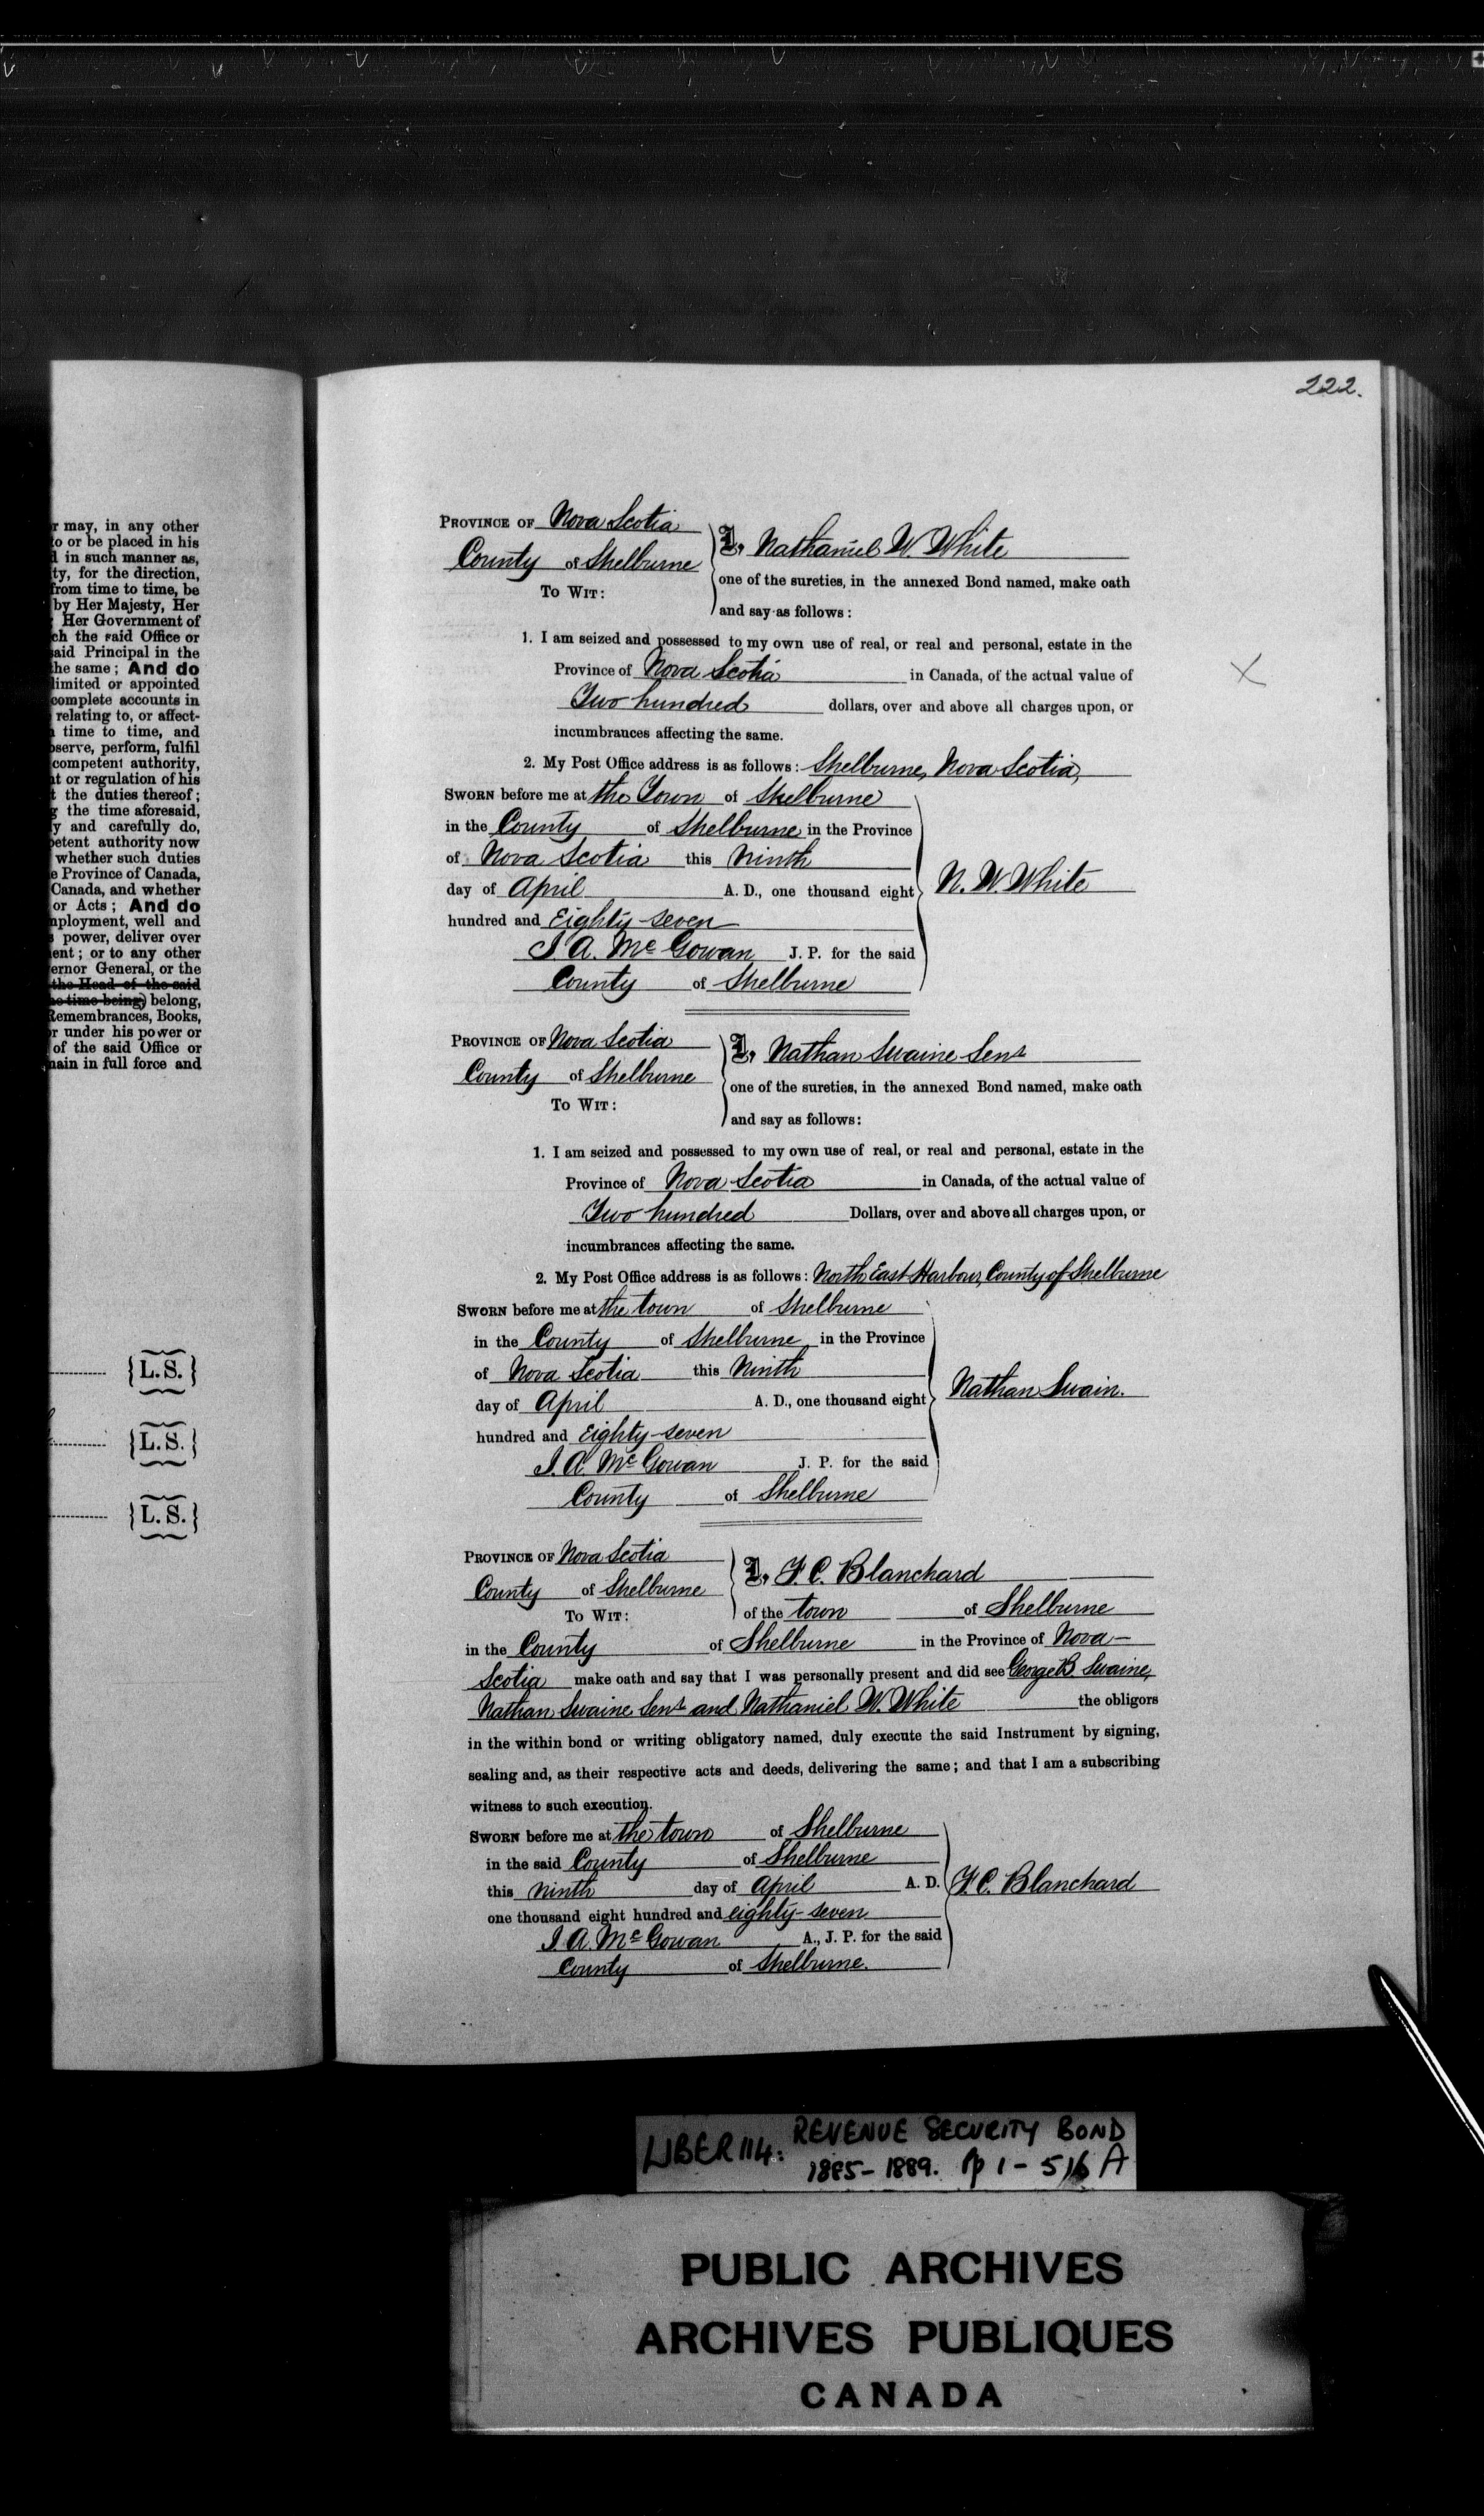 r may, in any other
to or be placed in his
d in such manner as,
ty, for the direction,
from time to time, be
by Her Majesty, Her
Her Government of
ch the said Office or
aid Principal in the
the same; And do
limited or appointed
complete accounts in
relating to, or affect-
time to time, and
serve, perform, fulfil
competent authority,
t or regulation of his
t the duties thereof;
g the time aforesaid,
y and carefully do,
petent authority now
whether such duties
e Province of Canada,
Canada, and whether
or Acts; And do
nployment, well and
power, deliver over
ent; or to any other
ernor General, or the
the Head of the said
e time being) belong,
Remembrances, Books,
r under his power or
of the said Office or
ain in full force and
{L.S.}
{L.S.}
{L.S.}
222.
PROVINCE OF Nova Scotia
County of Shelburne
TO WIT:
I, Nathaniel W. White
one of the sureties, in the annexed Bond named, make oath
and say as follows:
1. I am seized and possessed to my own use of real, or real and personal, estate in the
Province of Nova Scotia in Canada, of the actual value of
Two hundred dollars, over and above all charges upon, or
incumbrances affecting the same.
2. My Post Office address is as follows: Shelburne, Nova Scotia,
SWORN before me at the Town of Shelburne
in the County of Shelburne in the Province
of Nova Scotia this Ninth
day of April A. D., one thousand eight
hundred and Eighty-seven
N. W. White
J. A. McGowan J. P. for the said
County of Shelburne
PROVINCE OF Nova Scotia
County of Shelburne
TO WIT:
I, Nathan Swaine Senr
one of the sureties, in the annexed Bond named, make oath
and say as follows:
1. I am seized and possessed to my own use of real, or real and personal, estate in the
Province of Nova Scotia in Canada, of the actual value of
Two hundred Dollars, over and above all charges upon, or
incumbrances affecting the same.
2. My Post Office address is as follows: North East Harbour, County of Shelburne
SWORN before me at the town of Shelburne
in the County of Shelburne in the Province
of Nova Scotia this Ninth
day of April A. D., one thousand eight
hundred and Eighty-seven
Nathan Swain.
J. A. McGowan J. P. for the said
County of Shelburne
PROVINCE OF Nova Scotia
County of Shelburne
TO WIT:
I, F. C. Blanchard
of the town of Shelburne
in the County of Shelburne in the Province of Nova-
Scotia make oath and say that I was personally present and did see George B Swaine,
Nathan Swaine Senr and Nathaniel W. White the obligors
in the within bond or writing obligatory named, duly execute the said Instrument by signing,
sealing and, as their respective acts and deeds, delivering the same; and that I am a subscribing
witness to such execution.
SWORN before me at the town of Shelburne
in the said County of Shelburne
this ninth day of April A. D.
one thousand eight hundred and eighty-seven
F. C. Blanchard
J. A. McGowan A., J. P. for the said
County of Shelburne.
LIBER 114: REVENUE SECURITY BOND
1885-1889. pp 1-516 A
PUBLIC ARCHIVES
ARCHIVES PUBLIQUES
CANADA